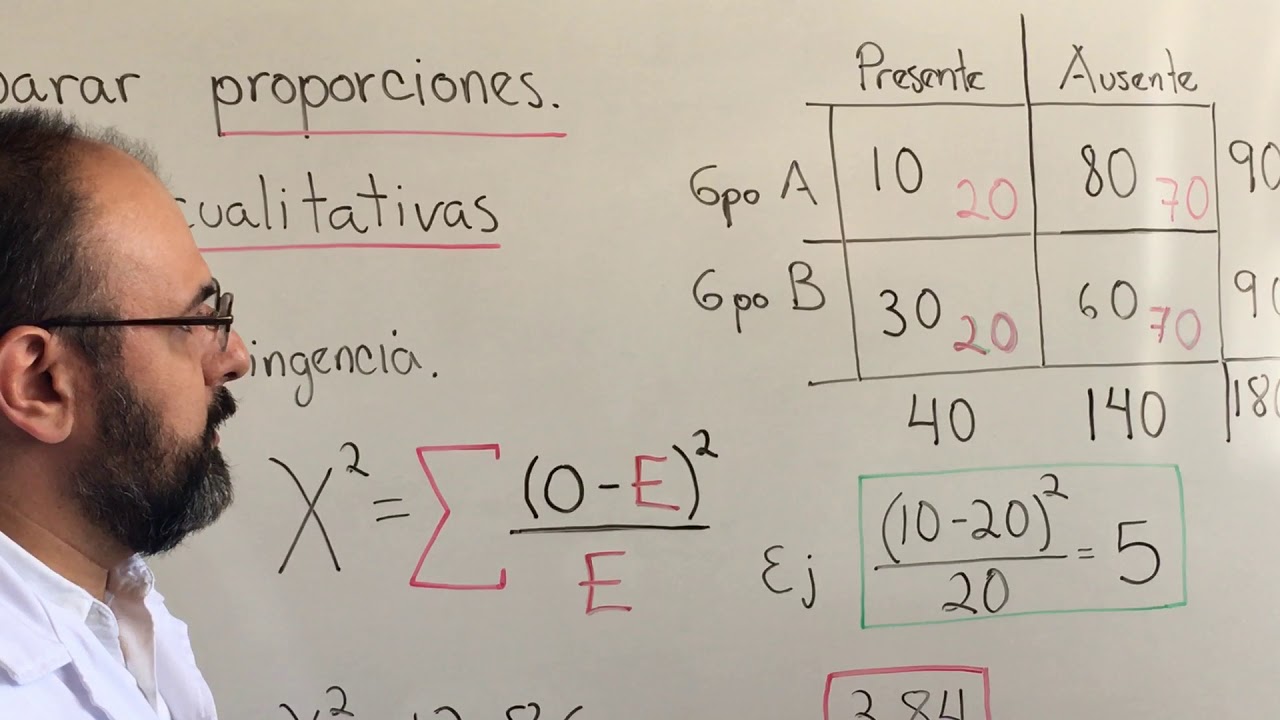 proporciones.
cualitativas
Presente Ausente
Gpo A 10 20 80 70 90
Gpo B 30 20 60 70 90
40 140 180
X² = ∑ (O-E)² / E
Ej (10-20)² / 20 = 5
3.84